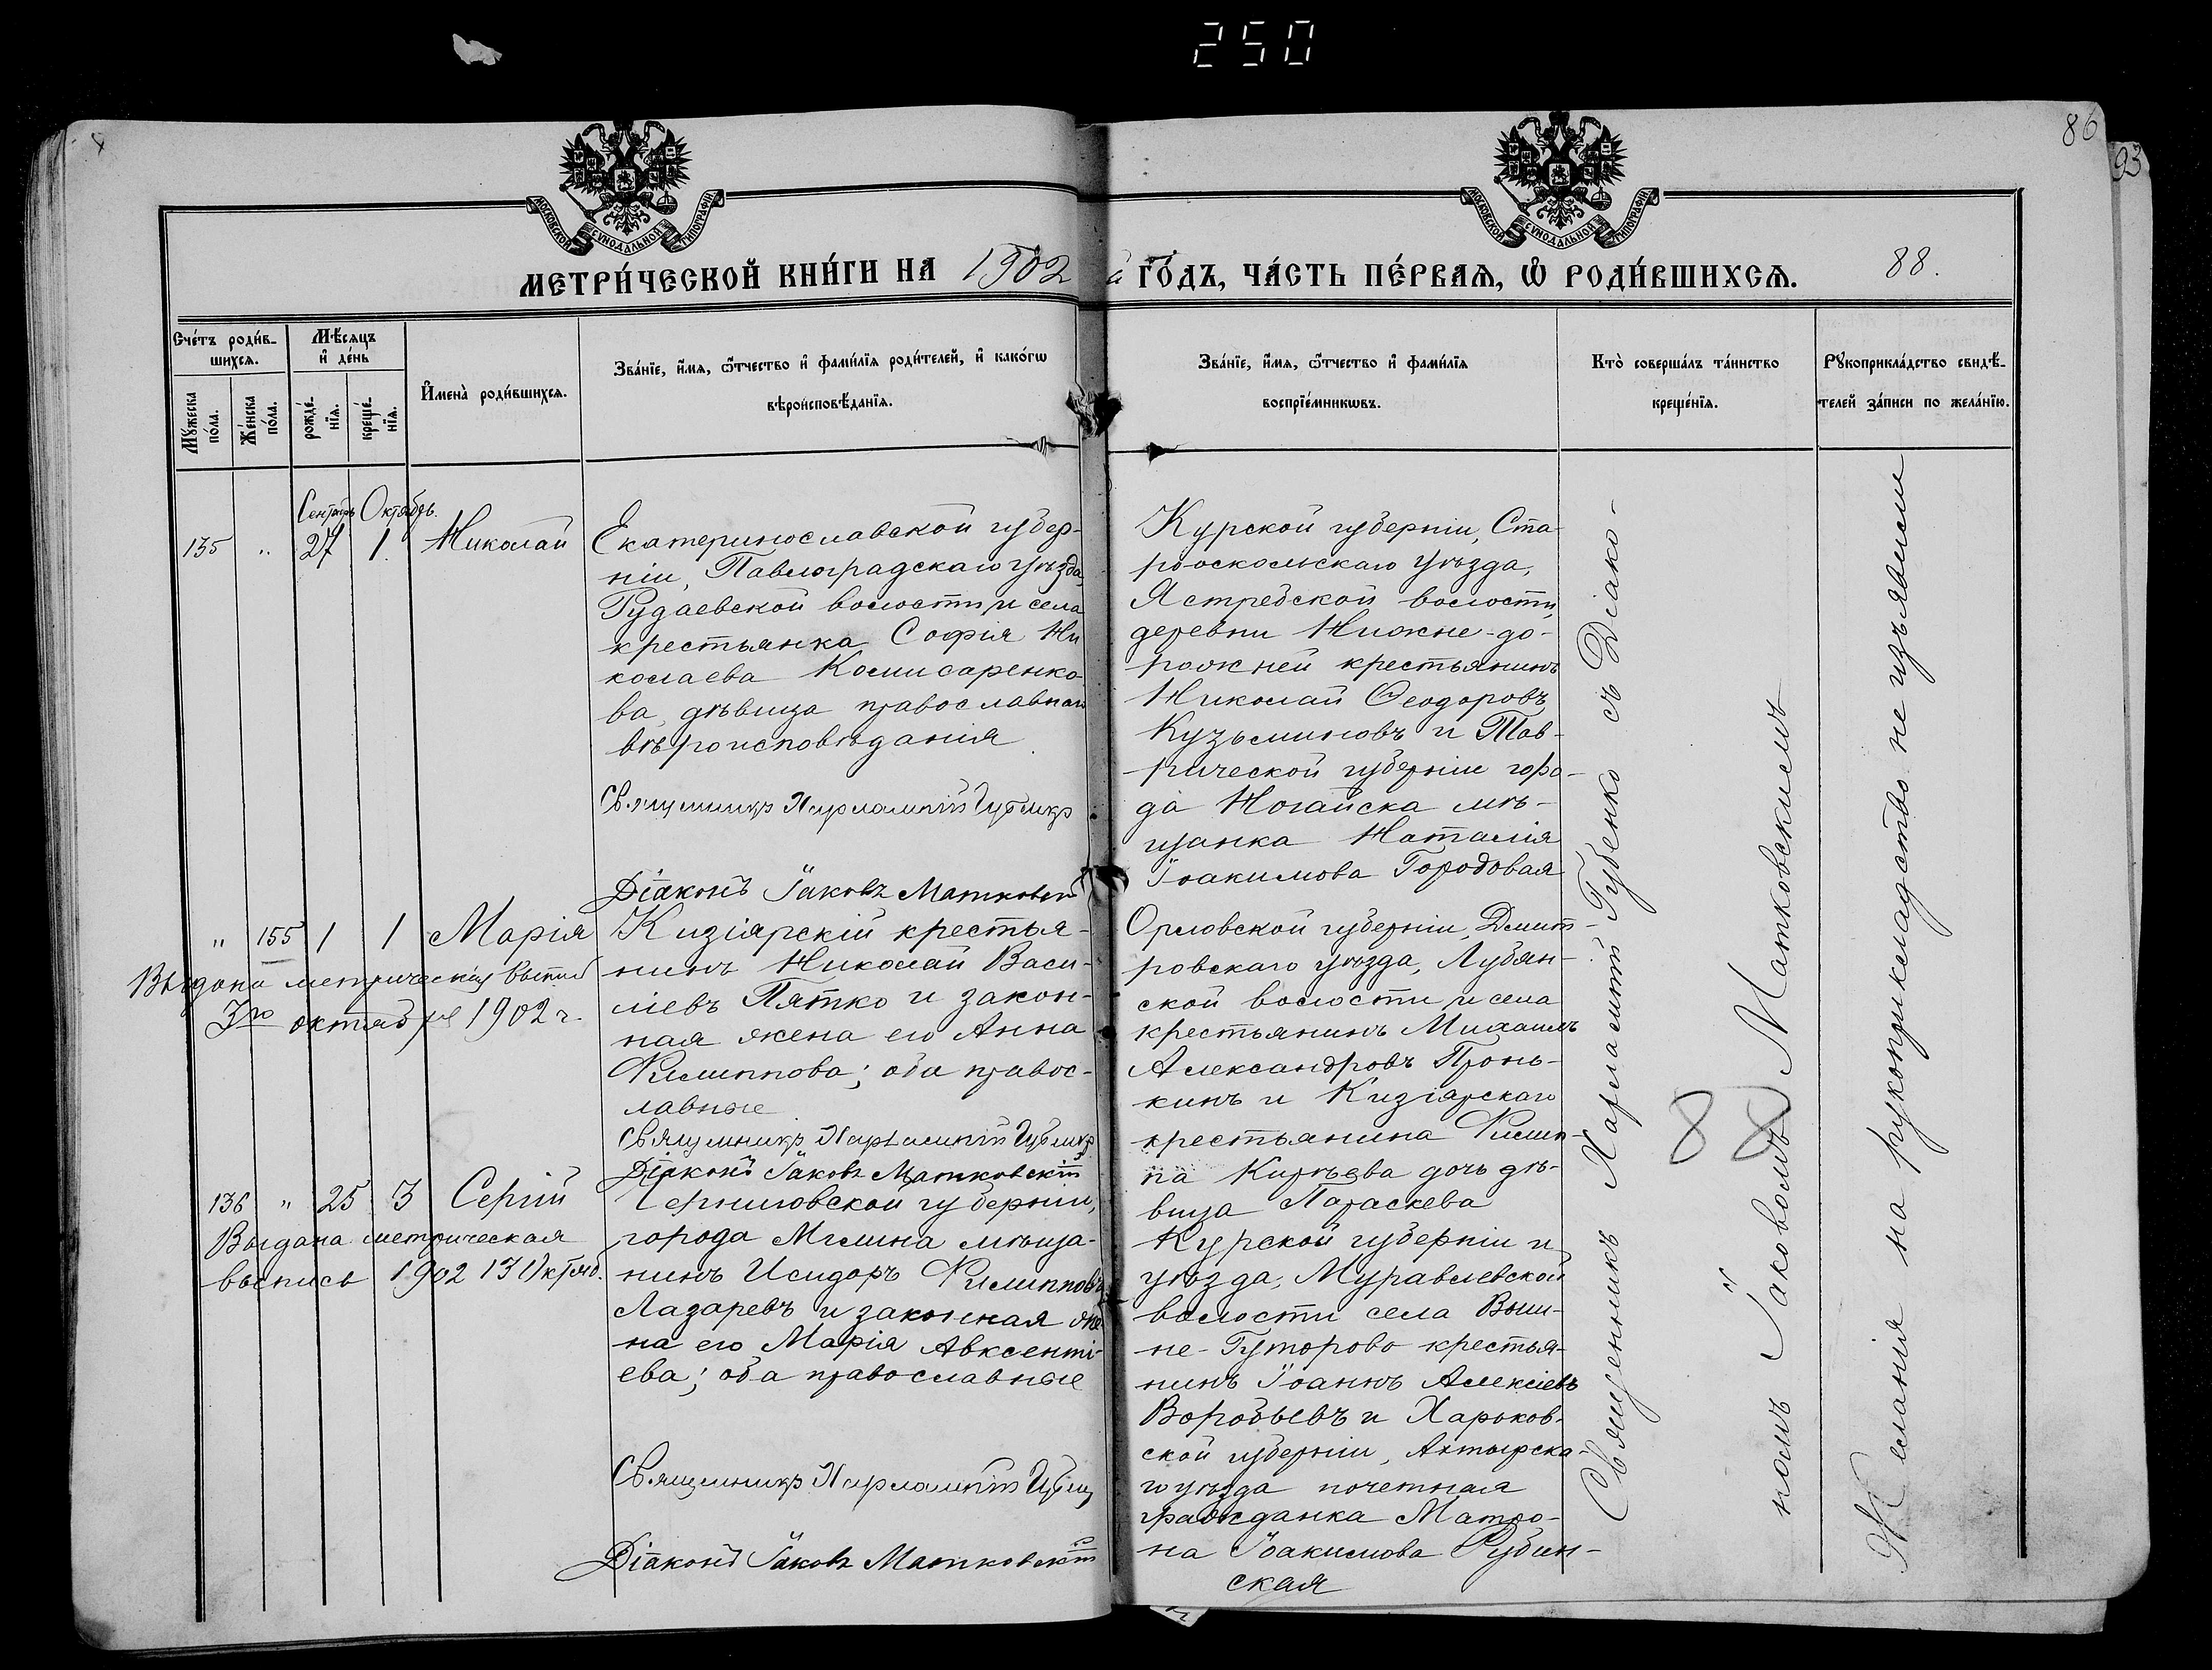 250
86
93
МОСКОВСКОЙ СѴНОДАЛЬНОЙ ТИПОГРАФІИ
МОСКОВСКОЙ СѴНОДАЛЬНОЙ ТИПОГРАФІИ
МЕТРИ́ЧЕСКОЙ КНИ́ГИ НА 1902 й ГО́ДЪ, ЧА́СТЬ ПЕ́РВАѦ, Ѡ҆ РОДИ́ВШИХСѦ.
88.
Сче́тъ роди́в-
шихсѧ.
Мꙋ́жеска по́ла.
Же́нска по́ла.
Мѣ́сѧцъ
и҆ де́нь
рожде́-
нїѧ.
креще́-
нїѧ.
И҆мена̀ роди́вшихсѧ.
Зва́нїе, и҆́мѧ, ѻ҆́тчество и҆ фами́лїѧ роди́телей, и҆ како́гѡ
вѣроисповѣ́данїѧ.
Зва́нїе, и҆́мѧ, ѻ҆́тчество и҆ фами́лїѧ
воспрїе́мникѡвъ.
Кто̀ соверша́лъ та́инство
креще́нїѧ.
Рꙋкоприкла́дство свидѣ́-
телей за́писи по жела́нїю.
Сентябрь Октябрь.
135 " 27 1. Николай
Екатеринославской губер-
ніи, Павлоградскаго уѣзда,
Рудаевской волости и села
крестьянка Софія Ни
колаева Комисаренко-
ва, дѣвица православнаго
вѣроисповѣданія
Священникъ Харлампій Губенко
Діаконъ Іаковъ Матковскій
Курской губерніи, Ста
рооскольскаго уѣзда,
Ястребской волости,
деревни Нижне-до-
рожней крестьянинъ
Николай Ѳеодоровъ
Кузьминовъ и Тав-
рической губерніи горо-
да Ногайска мѣ-
щанка Наталія
Іоакимова Городовая
" 155 1 1 Марія
Выдана метрическая выпись
3го октября 1902 г.
Кизіярскій крестья-
нинъ Николай Васи-
ліевъ Пятко и закон-
ная жена его Анна
Филиппова; оба правос-
лавные
Священникъ Харлампій Губенко
Діаконъ Іаковъ Матковскій
Орловской губерніи, Дмит-
ровскаго уѣзда, Лубян-
ской волости и села
крестьянинъ Михаилъ
Александровъ Пронь-
кинъ и Кизіярскаго
крестьянина Филип-
па Кирѣева дочь дѣ-
вица Параскева
136 " 25 3 Сергій
Выдана метрическая
выпись 1902 13 Октяб.
Черниговской губерніи,
города Мглина мѣща-
нинъ Исидоръ Филипповъ
Лазаревъ и законная же-
на его Марія Авксенті-
ева; оба православные
Священникъ Харлампій Губенко
Діаконъ Іаковъ Матковскій
Курской губерніи и
уѣзда, Муравлевской
волости села Выш-
не-Гуторово крестья-
нинъ Іоаннъ Алексіевъ
Воробьевъ и Харьков-
ской губерніи, Ахтырска-
го уѣзда почетная
гражданка Матро-
на Іоакимова Рубин-
ская
Священникъ Харлампій Губенко съ Діако-
номъ Іаковомъ Матковскимъ
88
Желанія на рукоприкладство не изъявили